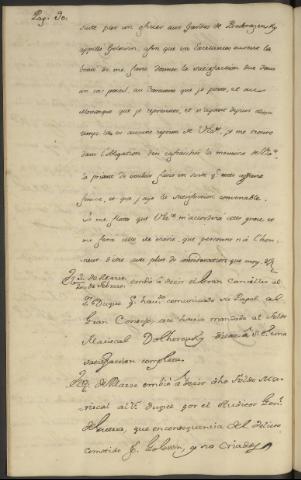 Pag. 30.
suité par un oficier aux Gardes de Prebrazensky
appellé Golowin, afin que en Excelence eut
bonté de me faire donner la satisfaction due dans
un cas pareil, au Domaine que je porte, et au
Monarque que je represente, et n'ayant depuis
temps la eu aucune reponse de V.Exª. je me trouve
dans l'obligation d'en rafraichir la memoire de V.Exª.
la priant de vouloir faire en sorte que cette affaire
finisse, et que j'aye la satisfaction convenable.
Je me flate que V.Exª. m'accordera cette grace et
me fera celle de croire, que personne n'a l'hon-
neur d'etre avec plus de consideration que moy. &ª
de Marzo embió a decir el Gran Canciller al
de Febrero
Duque q. havia comunicado su Papel al
Gran Consejo, que havia mandado al Feldt
Mariscal Dolhorouky diese a S.E. una
satisfaccion completa.
de Marzo embió a decir dho Feldt Ma-
riscal al Duque por el Auditor Genl.
de Guerra, que en consequencia del delicto
cometido por Golowin, y sus Criados